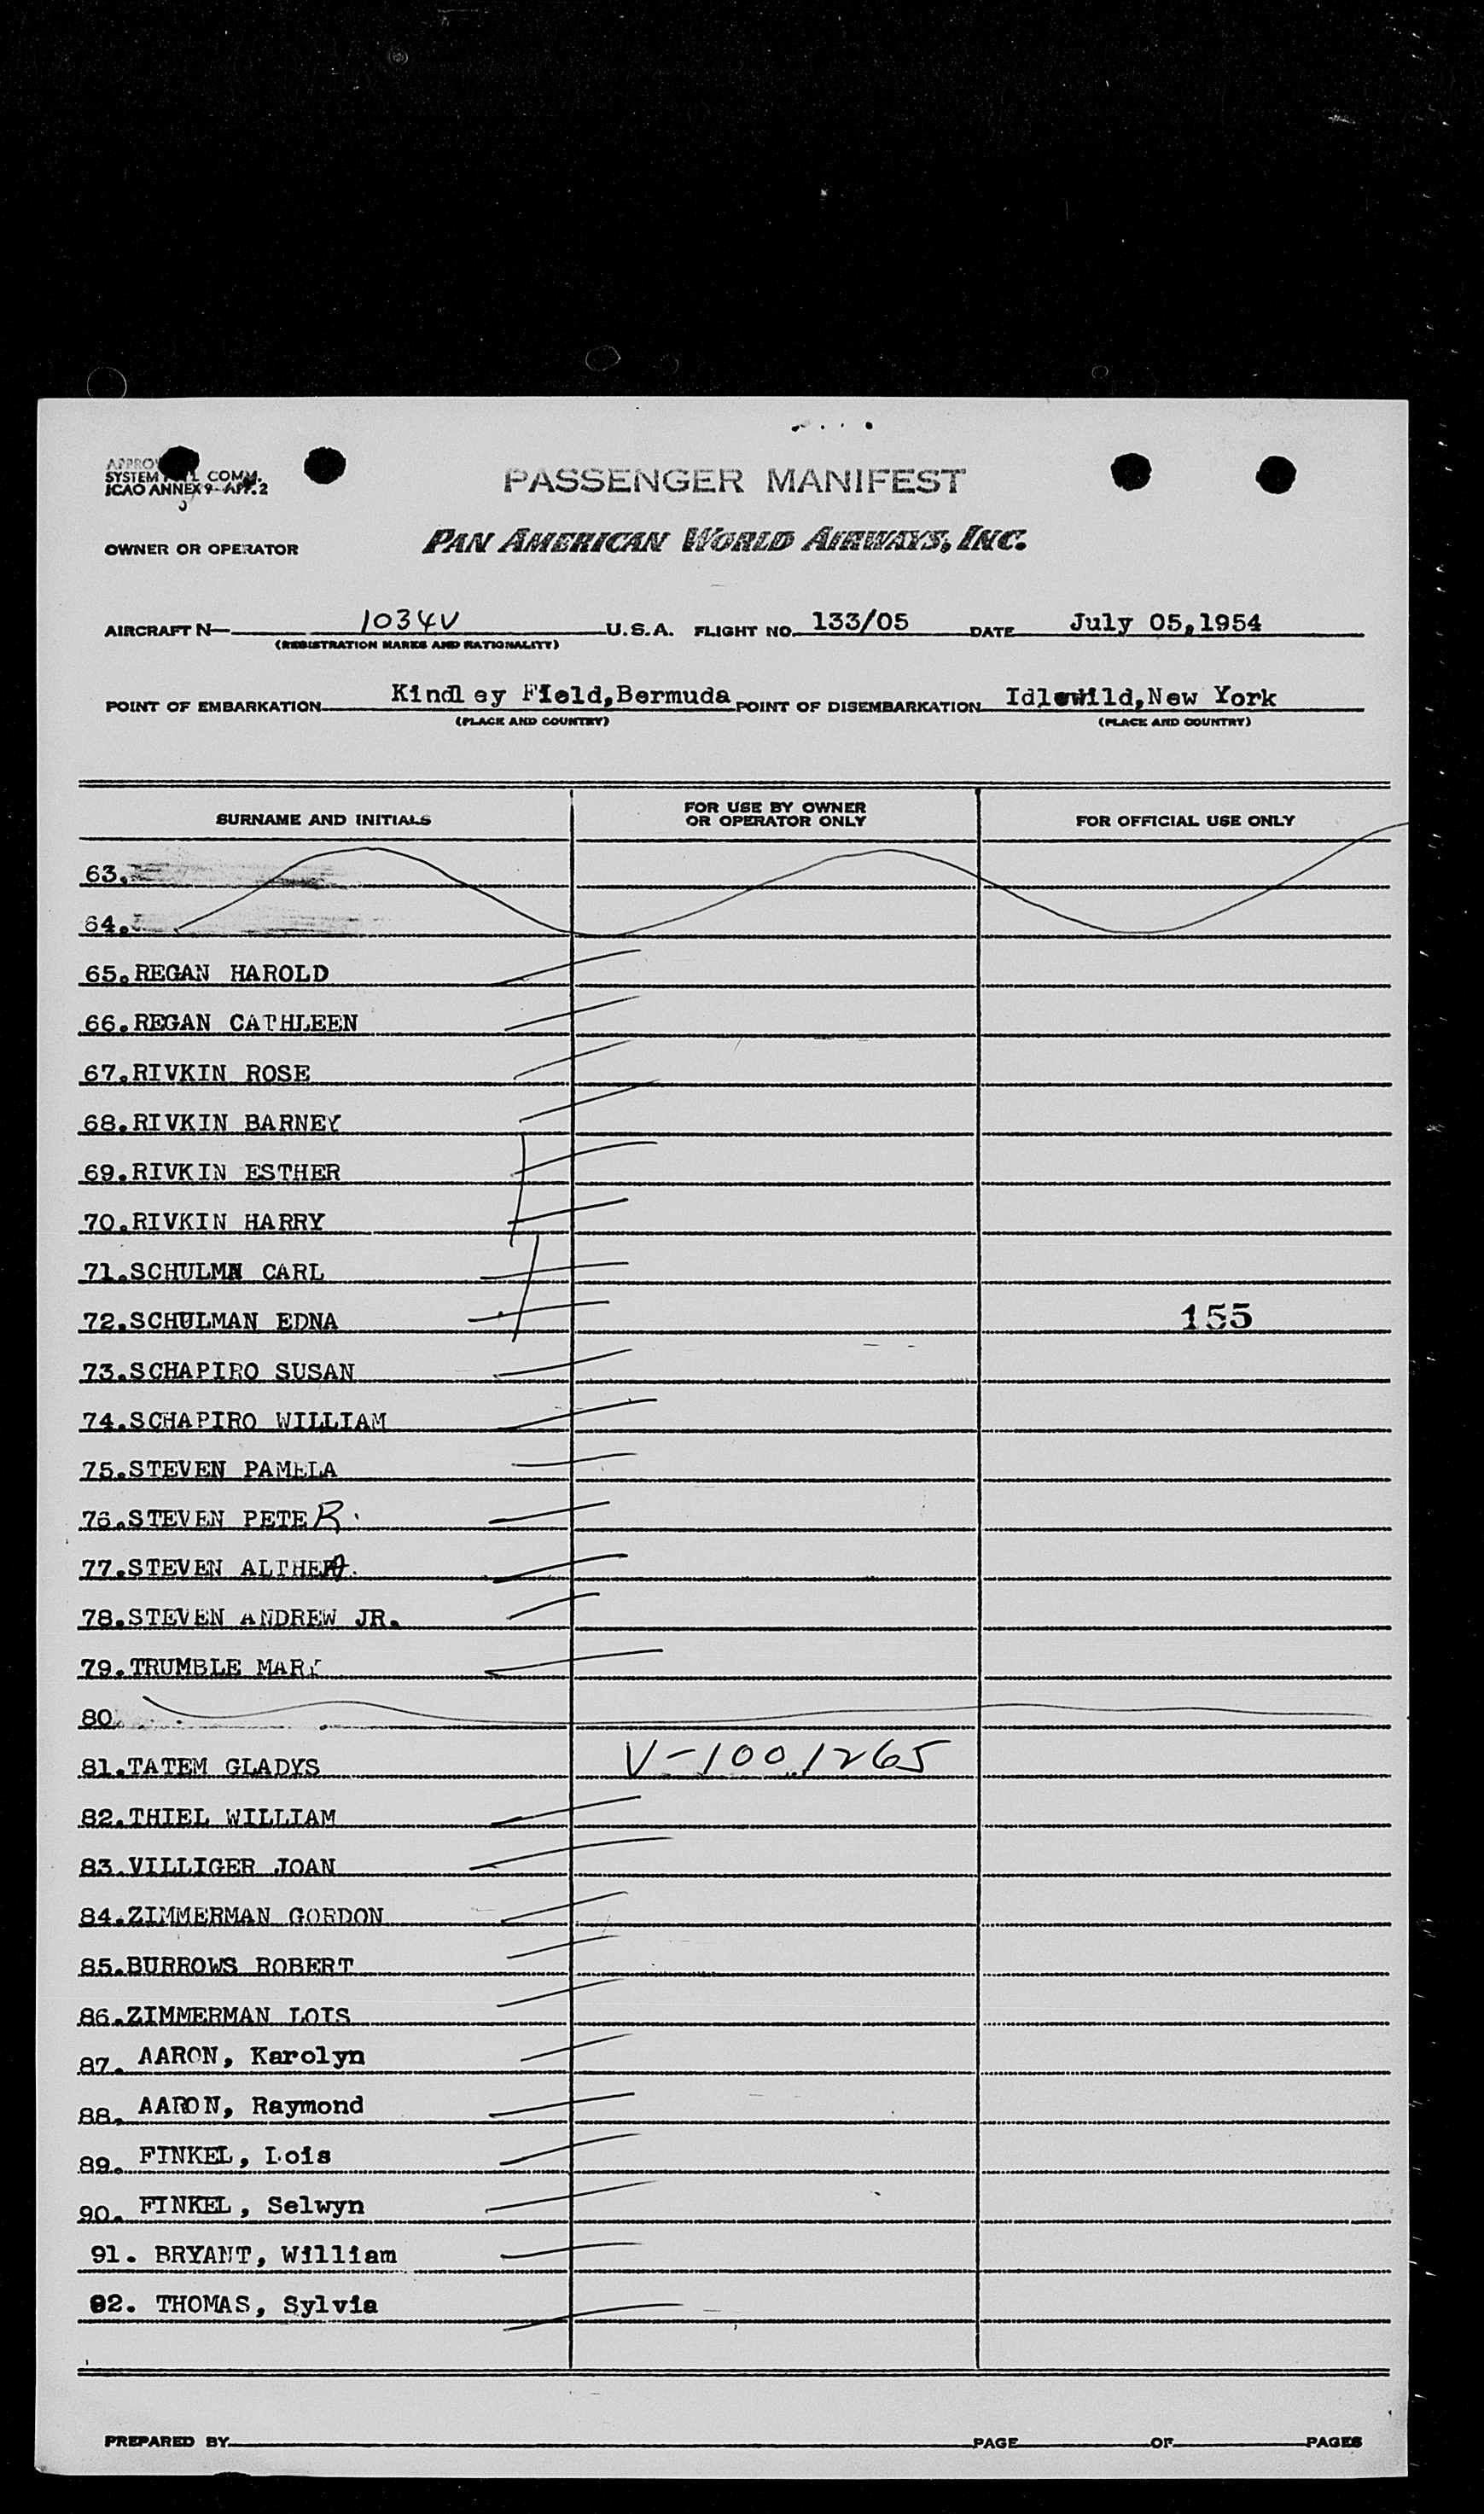 SYSTEM COMM.
ICAO ANNEX 9-APP. 2
PASSENGER MANIFEST
OWNER OR OPERATOR PAN AMERICAN WORLD AIRWAYS, INC.
AIRCRAFT N- 1034V U.S.A. FLIGHT NO. 133/05 DATE July 05,1954
(REGISTRATION MARKS AND NATIONALITY)
POINT OF EMBARKATION Kindley Field,Bermuda POINT OF DISEMBARKATION Idlewild,New York
(PLACE AND COUNTRY) (PLACE AND COUNTRY)
SURNAME AND INITIALS FOR USE BY OWNER OR OPERATOR ONLY FOR OFFICIAL USE ONLY
63.
64.
65.REGAN HAROLD
66.REGAN CATHLEEN
67.RIVKIN ROSE
68.RIVKIN BARNEY
69.RIVKIN ESTHER
70.RIVKIN HARRY
71.SCHULMN CARL
72.SCHULMAN EDNA 155
73.SCHAPIRO SUSAN
74.SCHAPIRO WILLIAM
75.STEVEN PAMELA
76.STEVEN PETER.
77.STEVEN ALTHEA.
78.STEVEN ANDREW JR.
79.TRUMBLE MARY
80.
81.TATEM GLADYS V-1001265
82.THIEL WILLIAM
83.VILLIGER JOAN
84.ZIMMERMAN GORDON
85.BURROWS ROBERT
86.ZIMMERMAN LOIS
87. AARON, Karolyn
88. AARON, Raymond
89. FINKEL, Lois
90. FINKEL, Selwyn
91. BRYANT, William
92. THOMAS, Sylvia
PREPARED BY PAGE OF PAGES